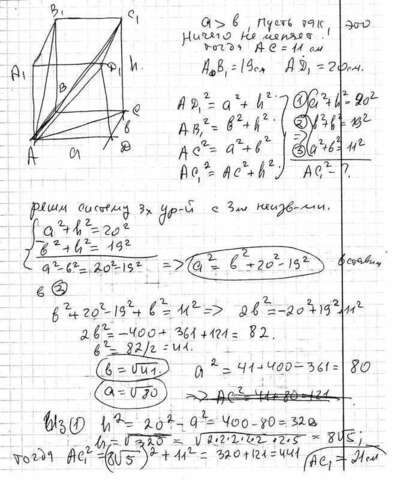 B₁ C₁
A₁ D₁ h
B C
A a D b
a > b, пусть так, это
ничего не меняет!
тогда AC = 11 см
AB₁ = 19 см AD₁ = 20 см.
AD₁² = a² + h²
AB₁² = b² + h²
AC² = a² + b²
AC₁² = AC² + h²
① a² + h² = 20²
② b² + h² = 19²
③ a² + b² = 11²
AC₁² - ?
решим систему 3х ур-й с 3мя неизв-ми.
a² + h² = 20²
b² + h² = 19²
a² - b² = 20² - 19² => a² = b² + 20² - 19² вставим
в ③
b² + 20² - 19² + b² = 11² => 2b² = -20² + 19² + 11²
2b² = -400 + 361 + 121 = 82.
b² = 82/2 = 41.
b = √41. a² = 41 + 400 - 361 = 80
a = √80 => AC² = 41 + 80 = 121
Из ① h² = 20² - a² = 400 - 80 = 320
h = √320 = √2·2·2·2·2·2·5 = 8√5;
тогда AC₁² = (8√5)² + 11² = 320 + 121 = 441 AC₁ = 21 см